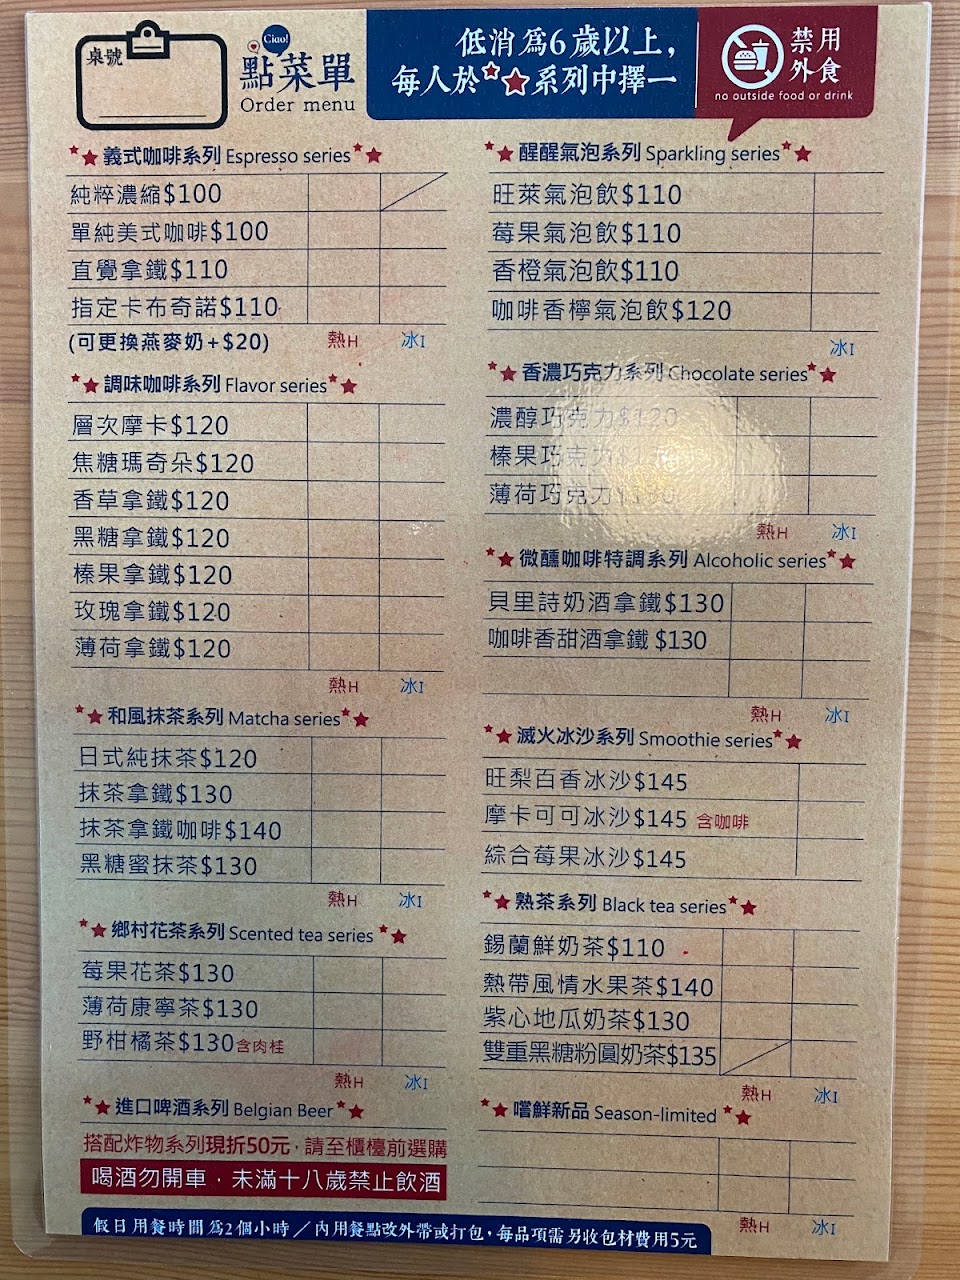 桌號
Ciao!
點菜單
Order menu
低消為6歲以上，
每人於★★系列中擇一
禁用
外食
no outside food or drink
★★義式咖啡系列 Espresso series★★
純粹濃縮$100
單純美式咖啡$100
直覺拿鐵$110
指定卡布奇諾$110
(可更換燕麥奶+$20) 熱H 冰I
★★調味咖啡系列 Flavor series★★
層次摩卡$120
焦糖瑪奇朵$120
香草拿鐵$120
黑糖拿鐵$120
榛果拿鐵$120
玫瑰拿鐵$120
薄荷拿鐵$120
熱H 冰I
★★和風抹茶系列 Matcha series★★
日式純抹茶$120
抹茶拿鐵$130
抹茶拿鐵咖啡$140
黑糖蜜抹茶$130
熱H 冰I
★★鄉村花茶系列 Scented tea series★★
莓果花茶$130
薄荷康寧茶$130
野柑橘茶$130含肉桂
熱H 冰I
★★進口啤酒系列 Belgian Beer★★
搭配炸物系列現折50元，請至櫃檯前選購
喝酒勿開車．未滿十八歲禁止飲酒
★★醒醒氣泡系列 Sparkling series★★
旺萊氣泡飲$110
莓果氣泡飲$110
香橙氣泡飲$110
咖啡香檸氣泡飲$120
冰I
★★香濃巧克力系列 Chocolate series★★
濃醇巧克力$120
榛果巧克力
薄荷巧克力
熱H 冰I
★★微醺咖啡特調系列 Alcoholic series★★
貝里詩奶酒拿鐵$130
咖啡香甜酒拿鐵 $130
熱H 冰I
★★滅火冰沙系列 Smoothie series★★
旺梨百香冰沙$145
摩卡可可冰沙$145 含咖啡
綜合莓果冰沙$145
★★熟茶系列 Black tea series★★
錫蘭鮮奶茶$110
熱帶風情水果茶$140
紫心地瓜奶茶$130
雙重黑糖粉圓奶茶$135
熱H 冰I
★★嚐鮮新品 Season-limited ★★
熱H 冰I
假日用餐時間為2個小時／內用餐點改外帶或打包，每品項需另收包材費用5元